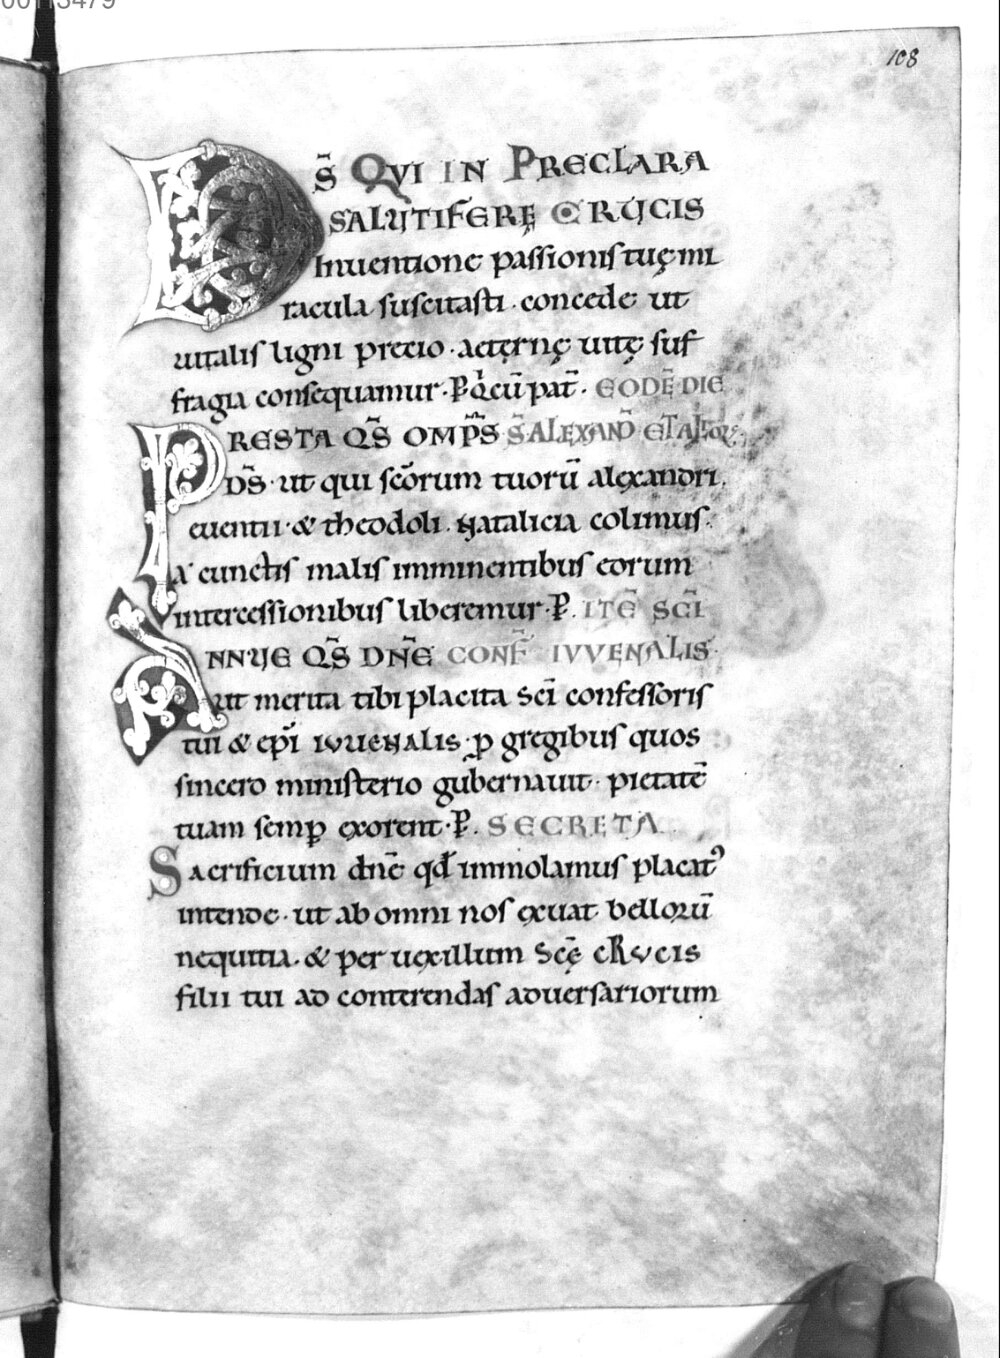 00113479
108
DS̄ QVI IN PRECLARA
SALVTIFERĘ CRVCIS
Inuentione passionis tuę mi
racula suscitasti · concede ut
uitalis ligni precio · aeternę uitę suf
fragia consequamur · P̄ Q̇ cū pat̄ · EODĒ DIE
PRESTA QS̄ OMP̄S S̄ ALEXAND̄ ET ALIOR̄
DS̄ · ut qui sc̄orum tuorū alexandri
euentii · & theodoli · natalicia colimus ·
A cunctis malis imminentibus eorum
intercessionibus liberemur · P̄ . ITĒ SC̄I
ANNVE QS̄ DN̄E CONF̄ IVVENALIS
ut merita tibi placita sc̄i confessoris
tui & ep̄i IUUENALIS · p̱ gregibus quos
sincero ministerio gubernauit · pietatē
tuam semp̱ exorent · P̄ . SECRETA
Sacrificium dn̄e qd̄ immolamus placat᾽
intende · ut ab omni nos exuat bellorū
nequitia · & per uexillum Sc̄ę CRVCIS
filii tui ad conterendas aduersariorum